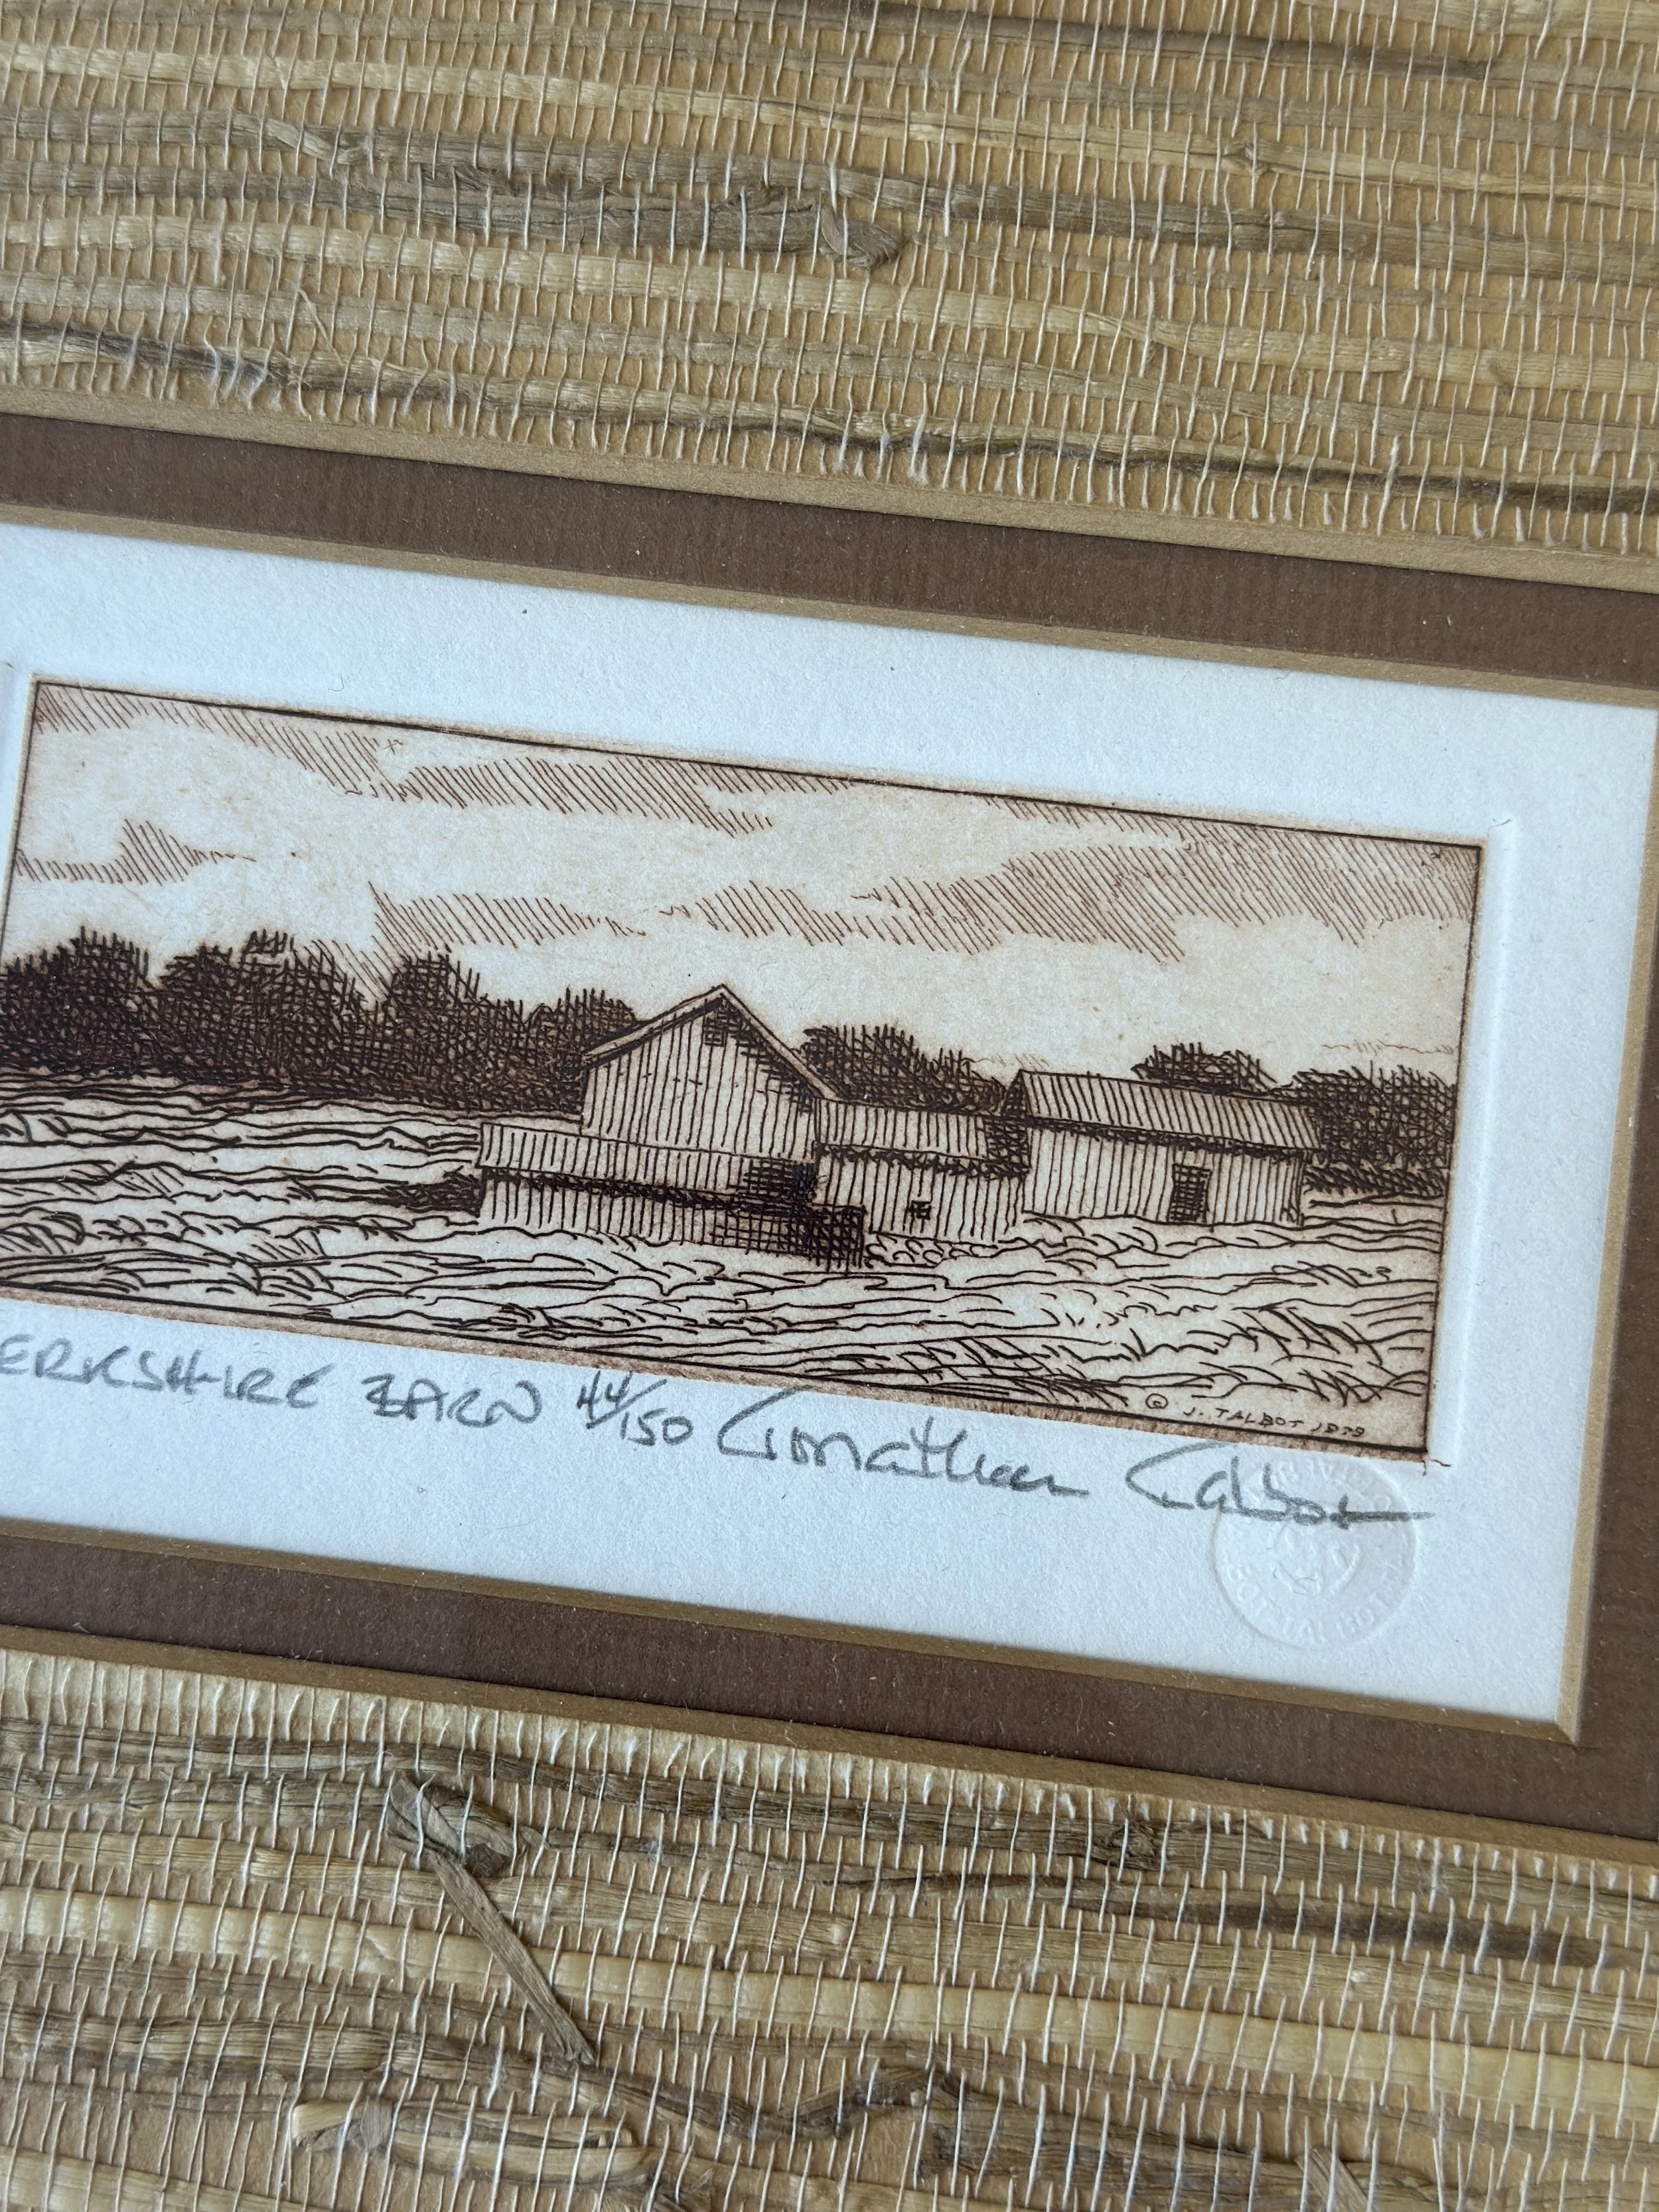 © J. TALBOT 1979
ERKSHIRE BARN 44/150 Jonathan Talbot